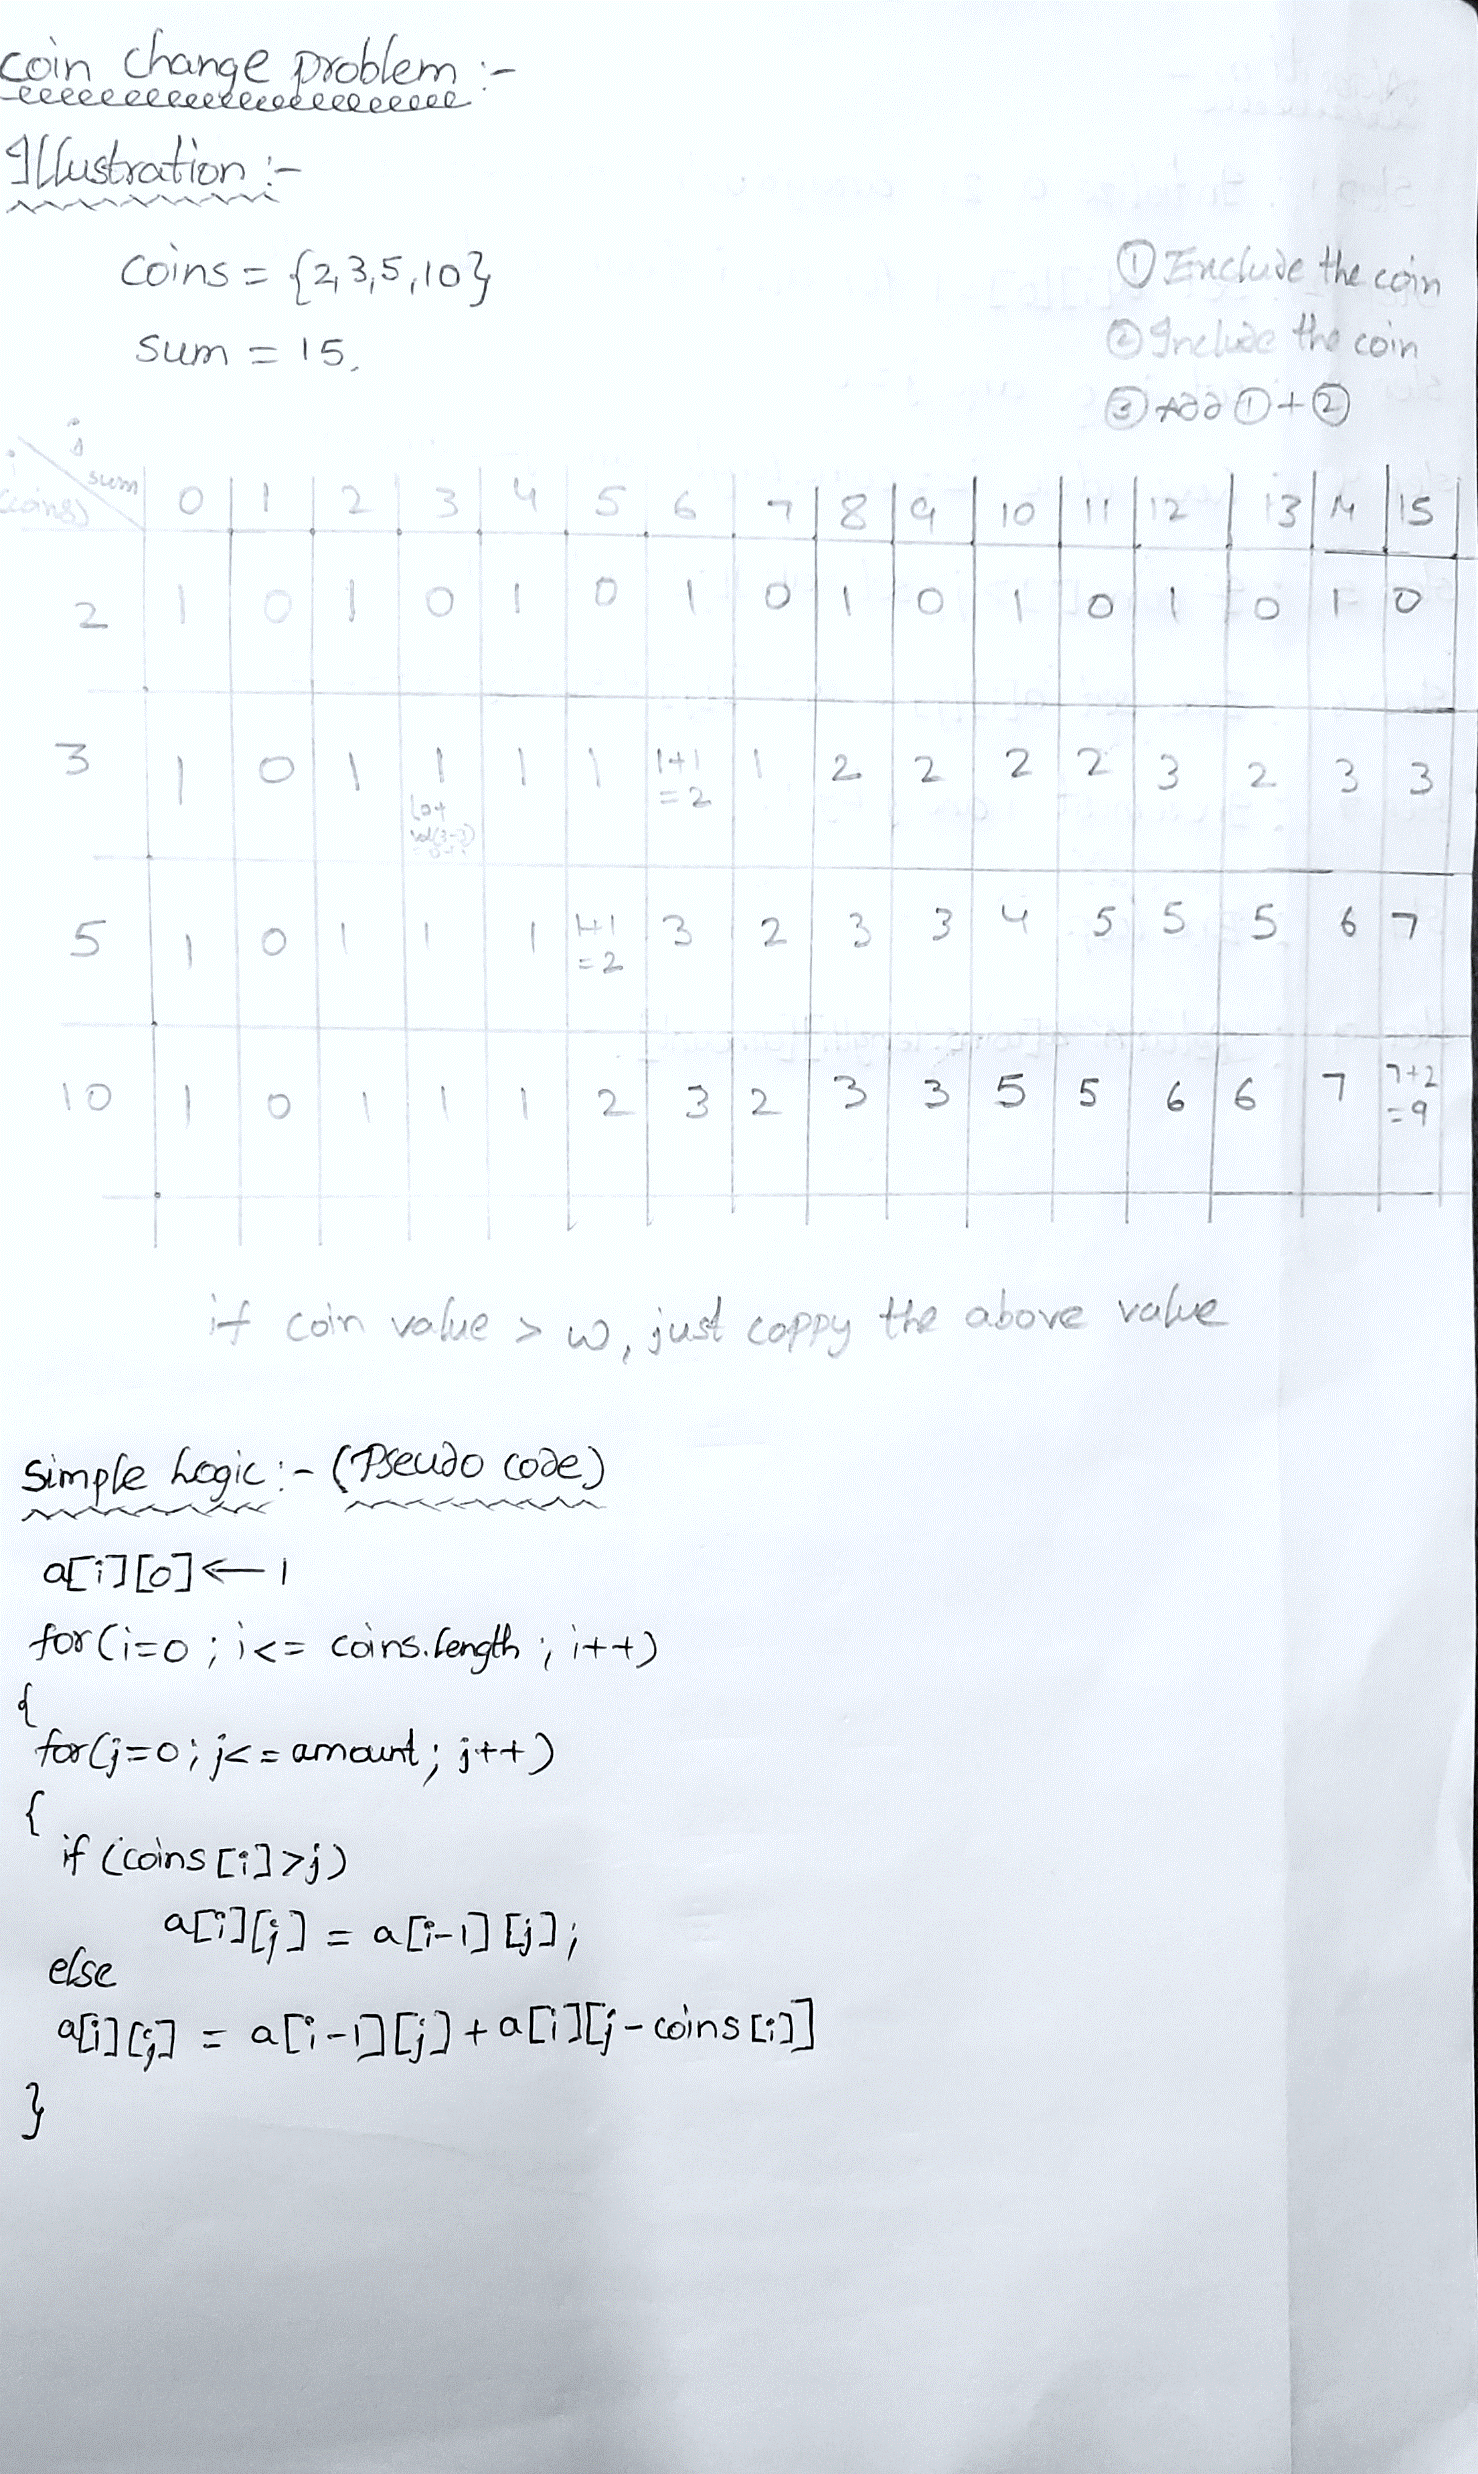 coin change problem :-
Illustration :-
coins = {2,3,5,10}
sum = 15.
① Exclude the coin
② Include the coin
③ Add ① + ②
j
i sum
(coins) 0 1 2 3 4 5 6 7 8 9 10 11 12 13 14 15
2 1 0 1 0 1 0 1 0 1 0 1 0 1 0 1 0
3 1 0 1 1 1 1 1+1 =2 1 2 2 2 2 3 2 3 3
5 1 0 1 1 1 1+1 =2 3 2 3 3 4 5 5 5 6 7
10 1 0 1 1 1 2 3 2 3 3 5 5 6 6 7 7+2 =9
if coin value > w, just coppy the above value
Simple Logic :- (Pseudo code)
a[i][0] ← 1
for(i=0 ; i<= coins.length ; i++)
{
for(j=0 ; j<=amount ; j++)
{
if (coins[i]>j)
a[i][j] = a[i-1][j];
else
a[i][j] = a[i-1][j]+a[i][j-coins[i]]
}